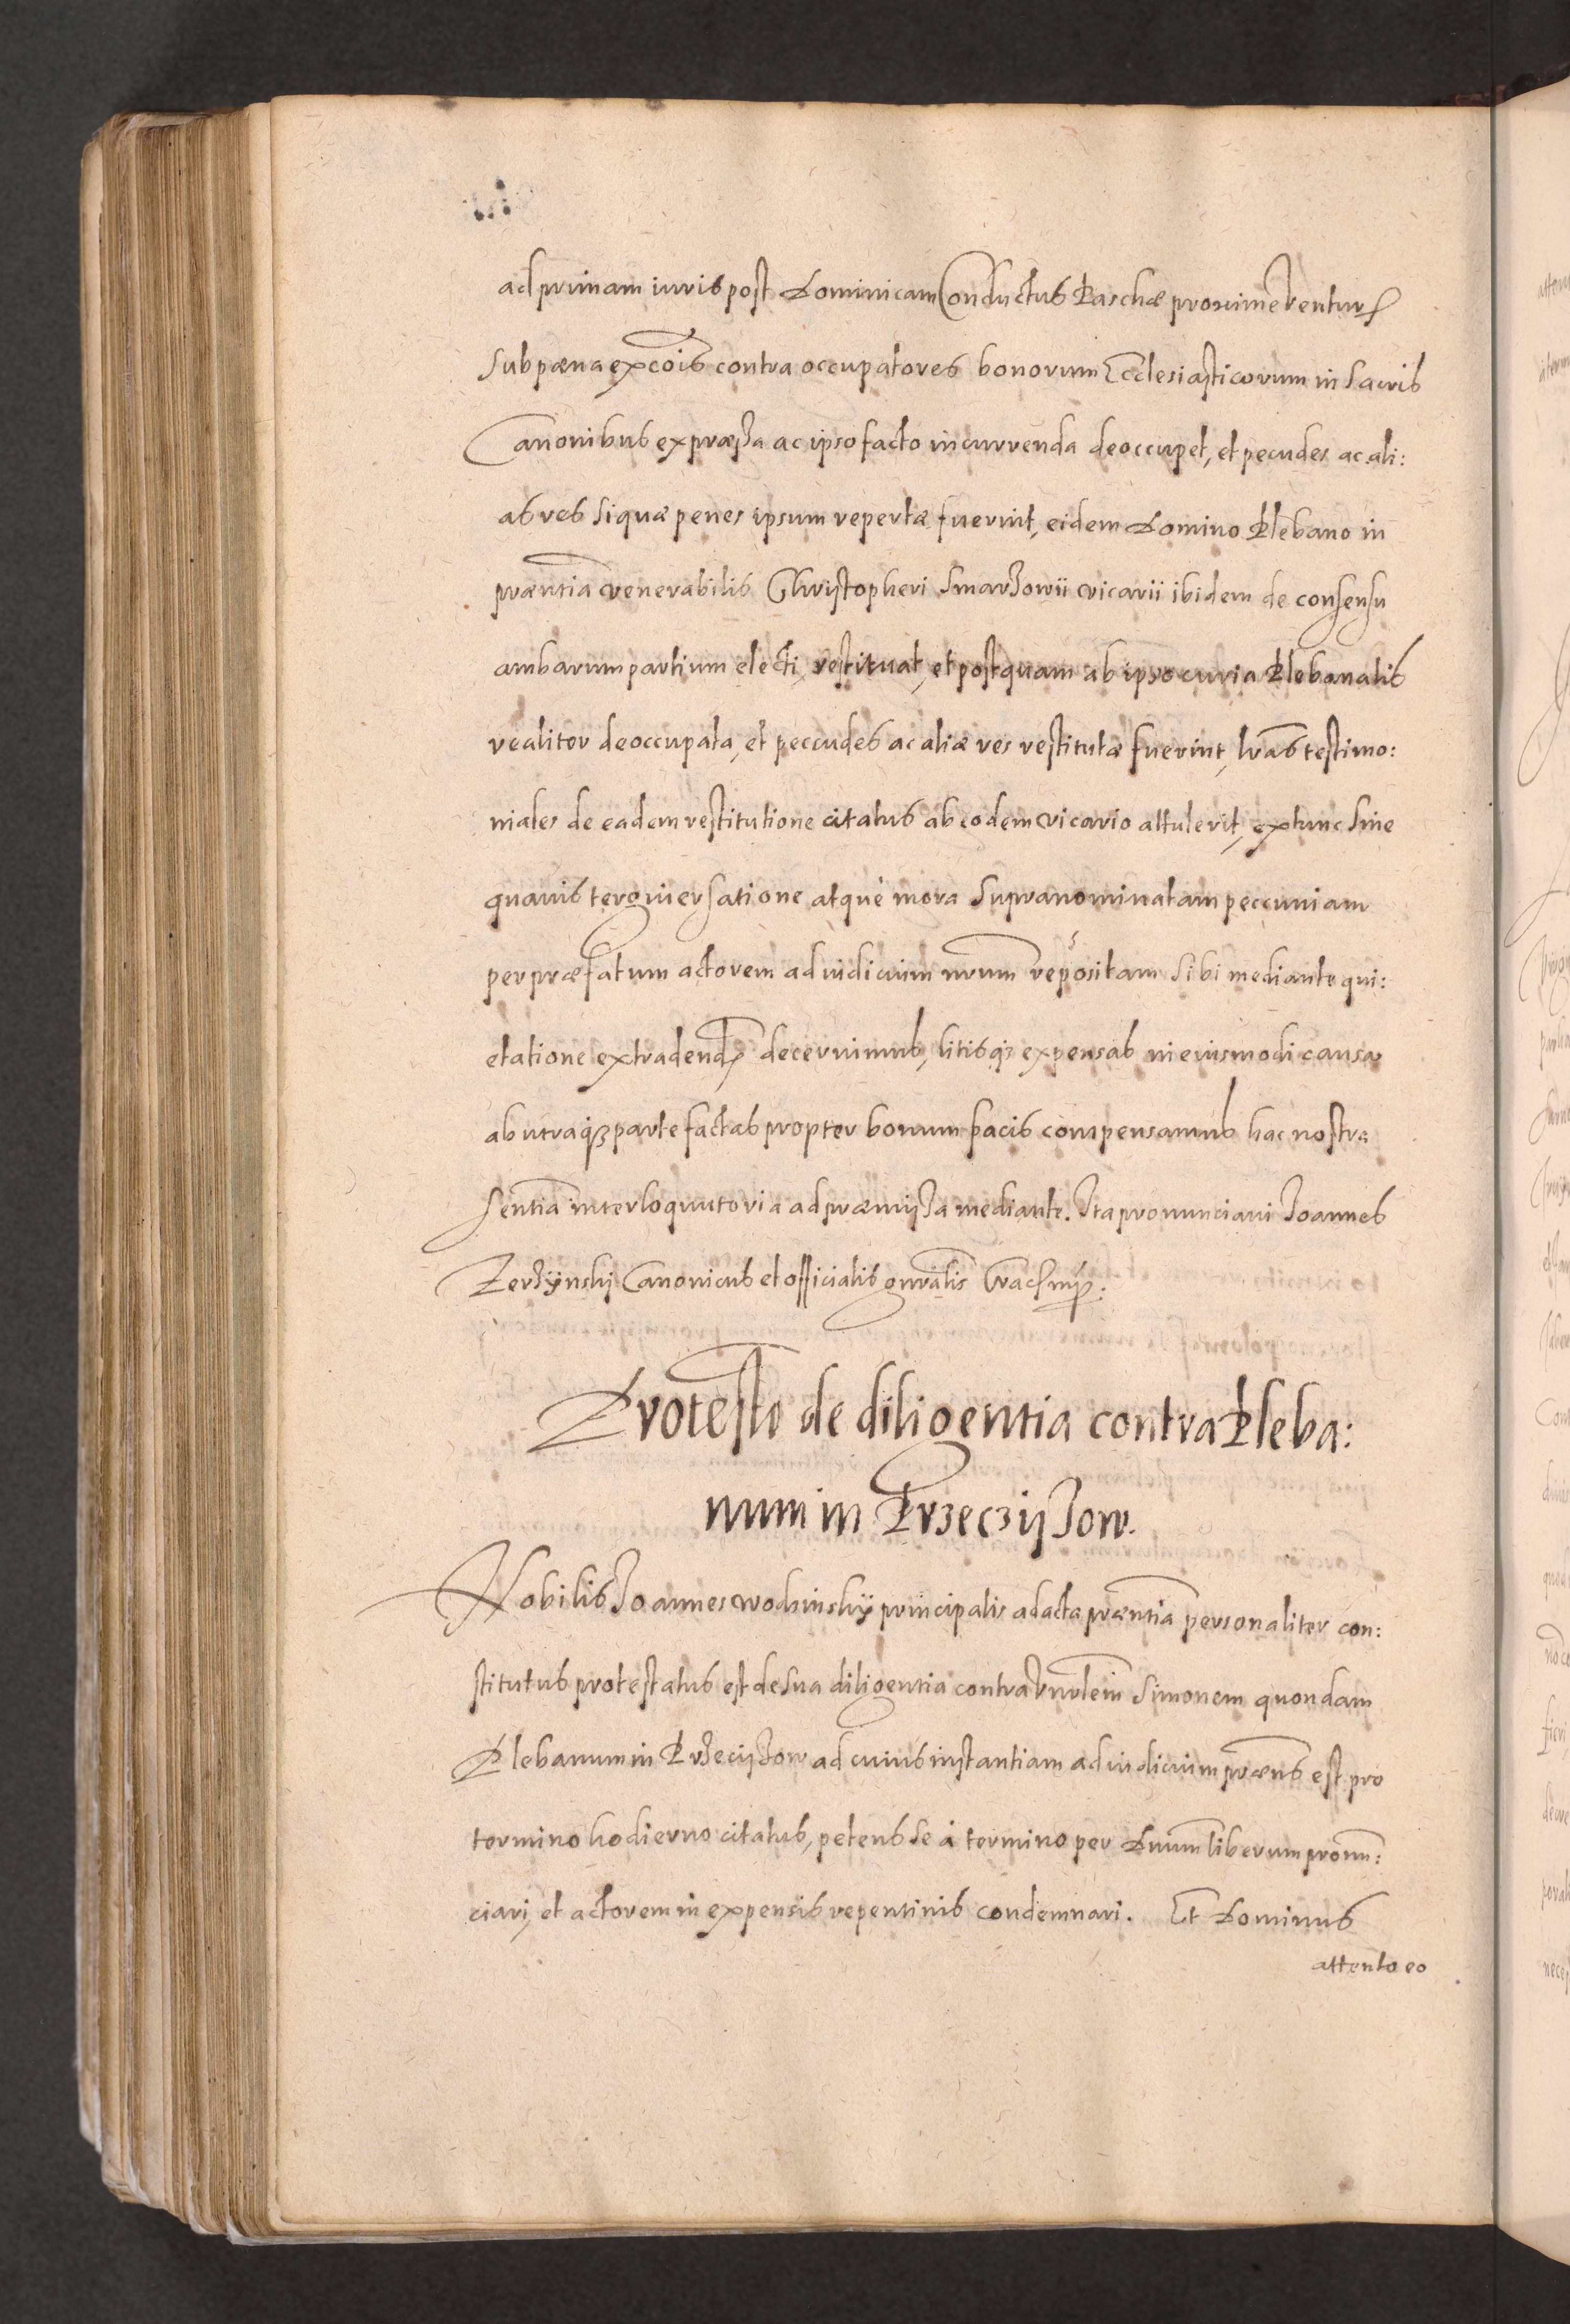 ad primam iuris post Dominicam Conductus Paschæ proxime
sub pæna excōis contra occupatores bonorum Ecclesiasticorum in Sacris
Canonibus expræssa ac ipso facto incurrenda deoccupet, et pecudes ac ali:
as res si quæ penes ipsum repertæ fuerint, eidem Domino Plebano in
præntia venerabilis Christopheri vicarii ibidem de consensu
ambarum partium electi, restituat, et postquam ab ipso curia Plebanalis
realiter deoccupata, et peccudes ac aliæ res restitutæ fuerint, lras testimo:
niales de eadem restitutione citatus ab eodem vicario attulerit, extunc sine
quavis tergiversatione atque mora supranominatam peccuniam
per præfatum actorem ad iudicium nrum repositam sibi mediante qui:
etatione extradend decernimus, litisq; expensas in eiusmodi causa
ab utraq; parte factas propter bonum pacis compensamus hac nostra
sentia interloquutoria ad præmissa mediante. Ita pronunciavi Joannes
Zerzÿnskÿ Canonicus et officialis gnralis
Protestō de diligentia contra Pleba:
num in Przeczÿssow.
Nobilis Joannes wodzinskÿ principalis ad acta præntia personaliter con:
stitutus protestatus est de sua diligentia contra Simonem quondam
Plebanum in ad cuius instantiam ad iudicium præns est pro
termino hodierno citatus, petens se à termino per Dnum liberum pronun:
ciari, et actorem in expensis repentinis condemnari. Et Dominus
attento eo